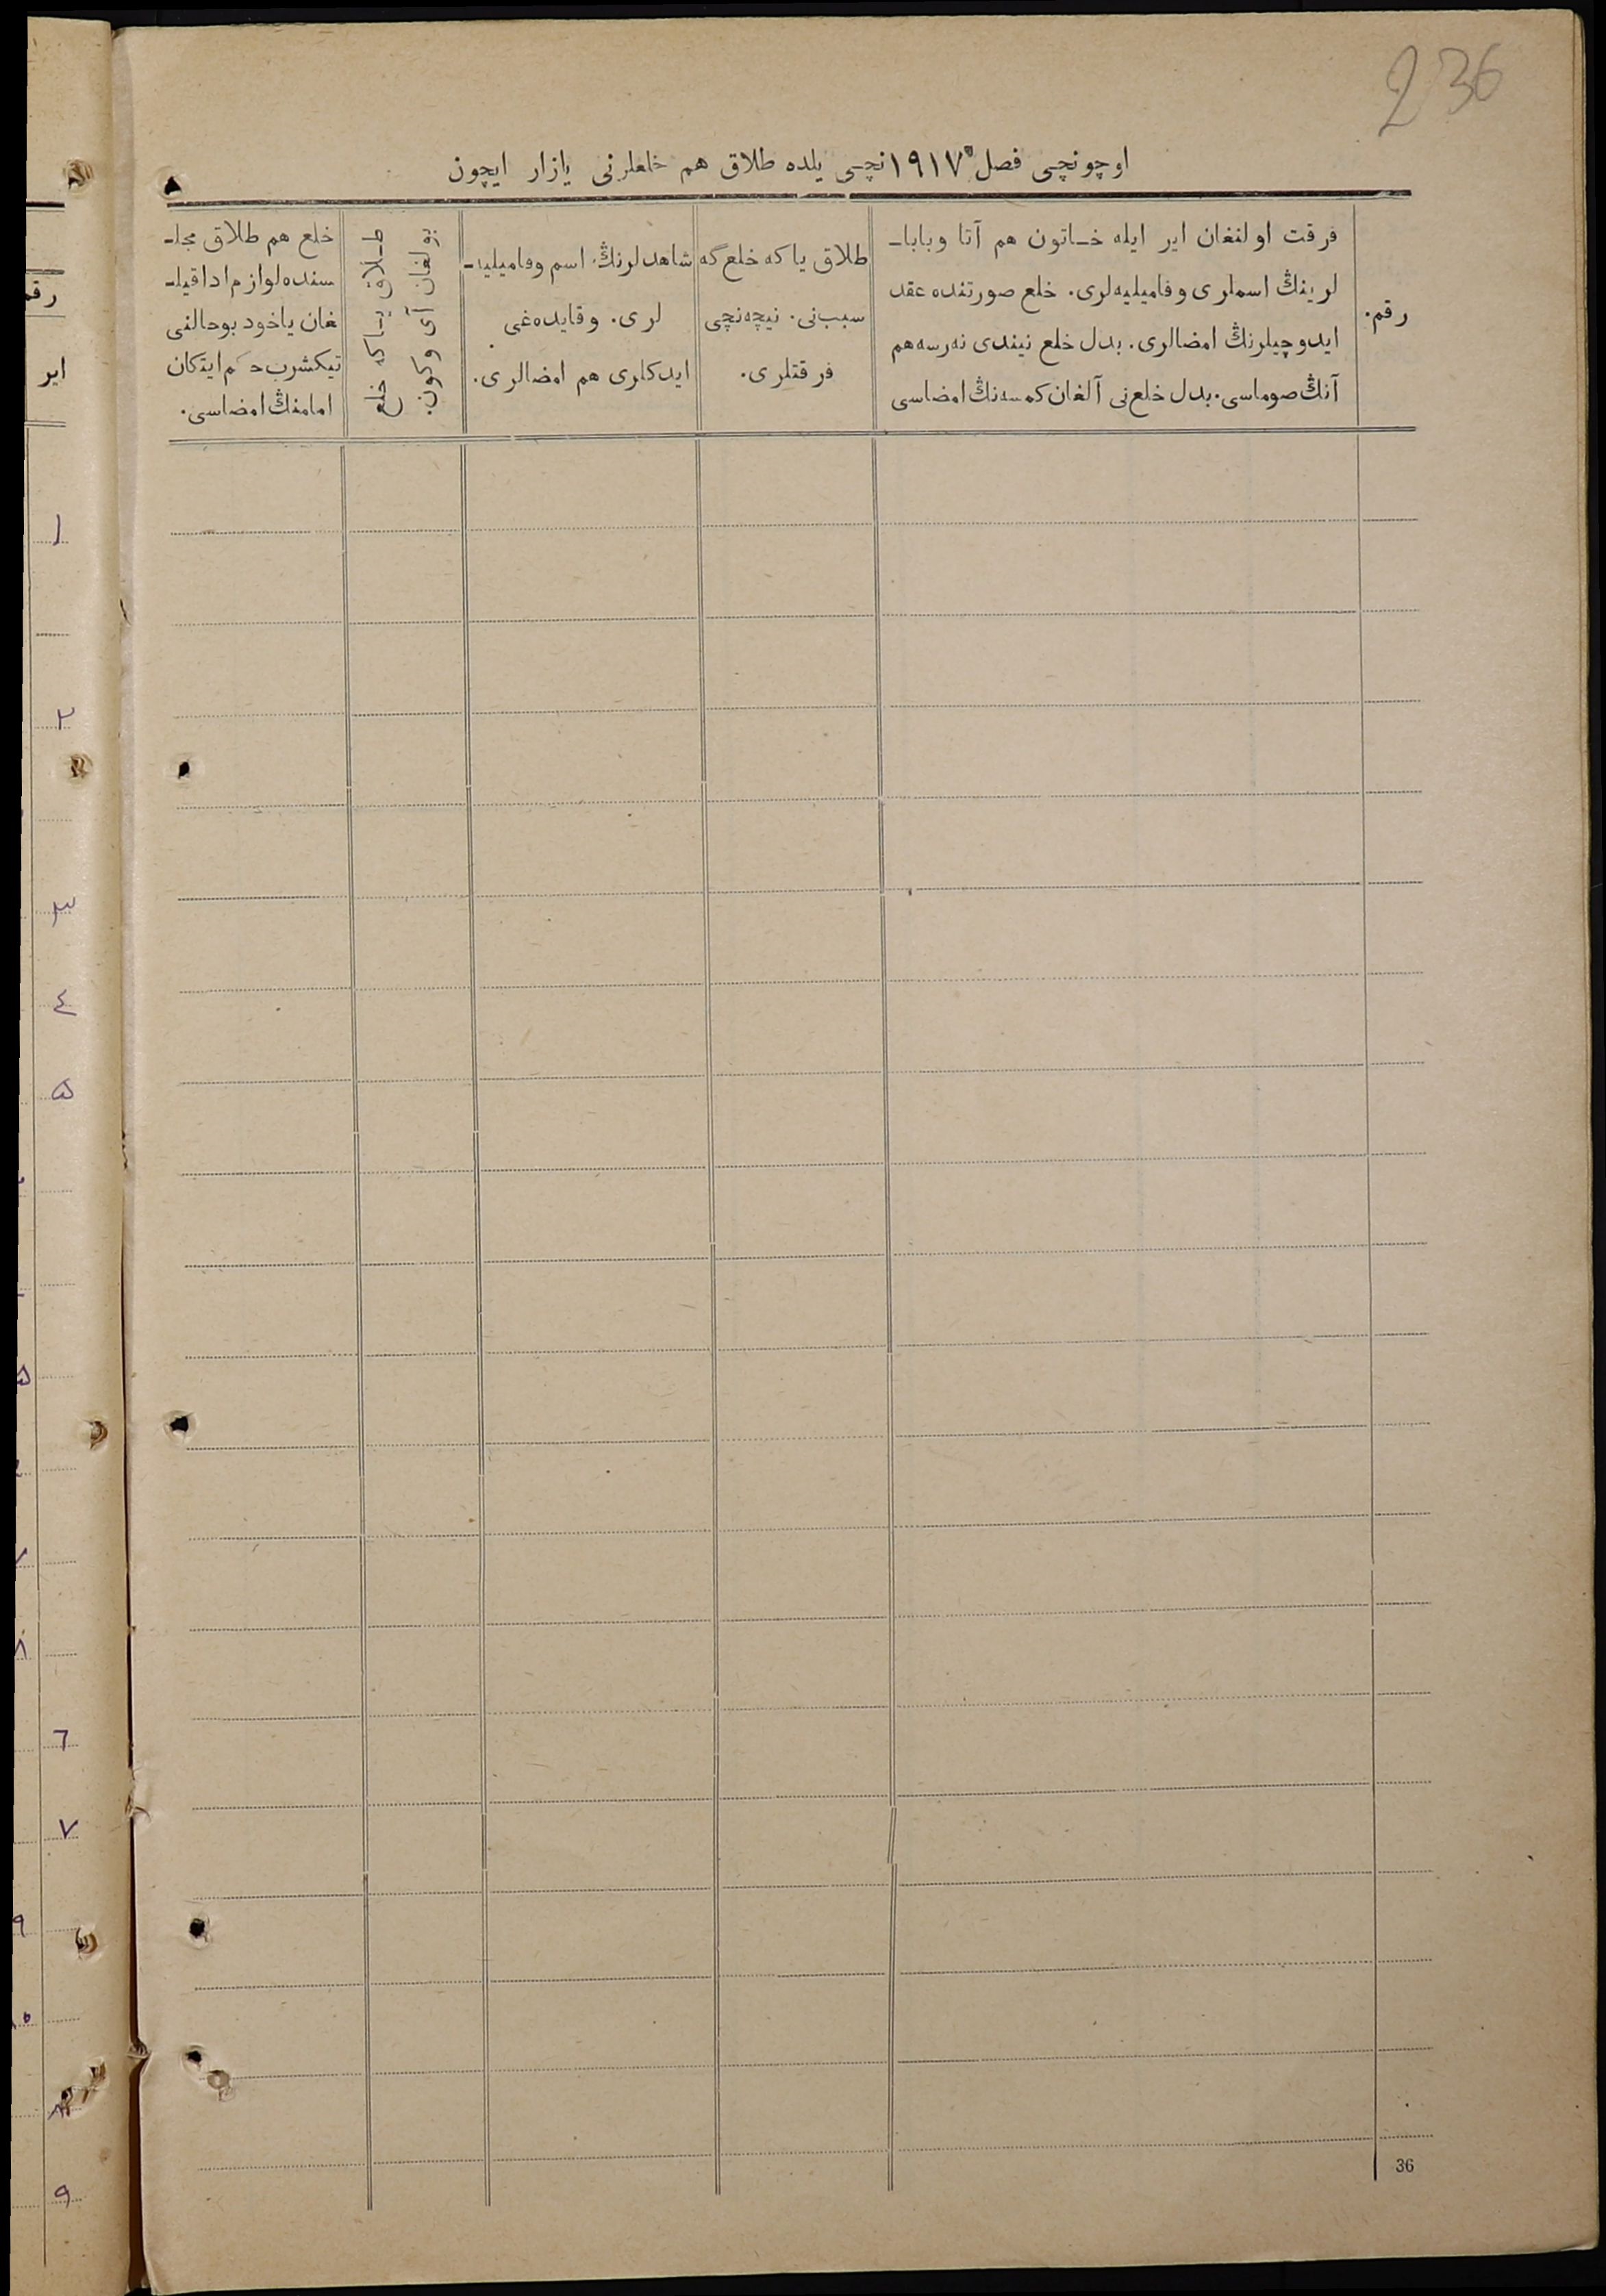 236
اوچونچی فصل ١٩١٧نچی یلده طلاق هم خلعلرنی یازار ایچون
رقم.
فرقت اولنغان ایر ایله خاتون هم آتا وبابا-
لرینڭ اسملری وفامیلیه‌لری. خلع صورتنده عقد
ایدوچیلرنڭ امضالری. بدل خلع نیندی نه‌رسه هم
آنڭ صوماسی. بدل خلع‌نی آلغان کمسه‌نڭ امضاسی
طلاق یاکه خلع‌گه
سبب‌نی. نیچه‌نچی
فرقتلری.
شاهدلرنڭ اسم وفامیلیه-
لری. وقایده‌غی
ایدکلری هم امضالری.
طلاق یاکه خلع
بولغان آی وکون.
خلع هم طلاق مجلـ
سنده لوازم ادا قیلـ
غان یاخود بوحالنی
تیکشرب حکم ایتکان
امامنڭ امضاسی.
رقم
ایر
١
٢
٣
٤
٥
٦
٧
٨
٩
36